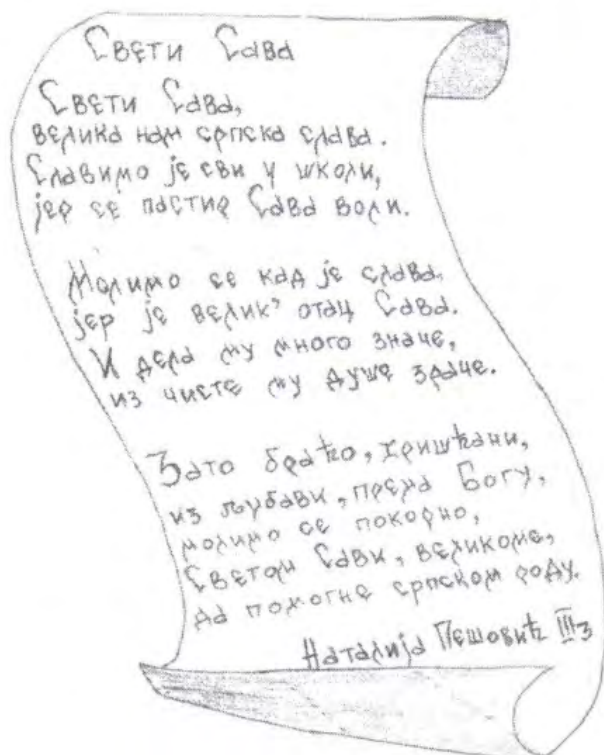 Свети Сава
Свети Сава,
велика нам српска слава.
Славимо је сви у школи,
јер се пастир Сава воли.
Молимо се кад је слава,
јер је велик' отац Сава.
И дела му много значе,
из чисте му душе зраче.
Зато браћо, хришћани,
из љубави, према Богу,
молимо се покорно,
Светом Сави, великоме,
да помогне српском роду.
Наталија Пешовић III3